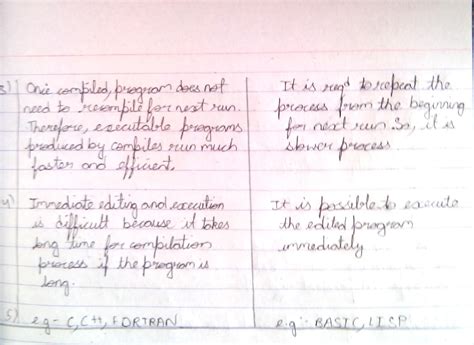 3) Once compiled, program does not
need to recompile for next run.
Therefore, executable programs
produced by compiles run much
faster and efficient.
It is reqd to repeat the
process from the beginning
for next run. So, it is
slower process.
4) Immediate editing and execution
is difficult because it takes
long time for compilation
process if the program is
long.
It is possible to execute
the edited program
immediately
5) e.g- C, C++, FORTRAN
e.g:- BASIC, LISP